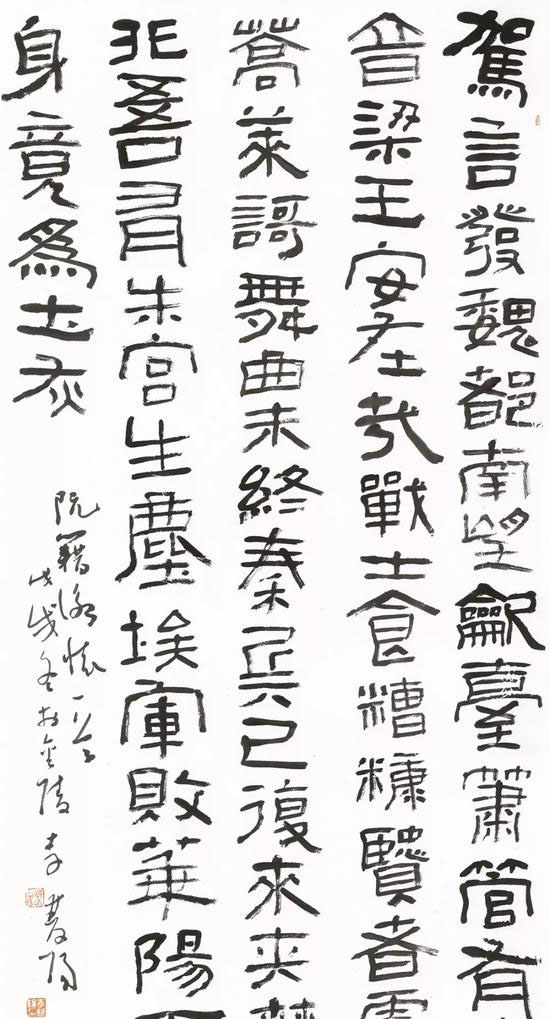 駕言發魏都南望龡臺簫管有
音梁王安在哉戰士食糟糠賢者
蒿萊謌舞曲未終秦兵已復來夾
非吾有朱宮生塵埃軍敗華陽
身竟為土灰
阮籍詠懷一首
戊戌冬於金陵李雙陽